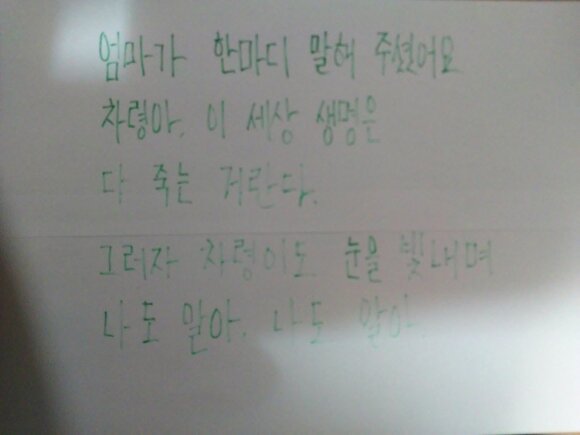 엄마가 한마디 말해 주셨어요
차령아, 이 세상 생명은
다 죽는 거란다.
그러자 차령이도 눈을 빛내며
나도 알아. 나도 알아.